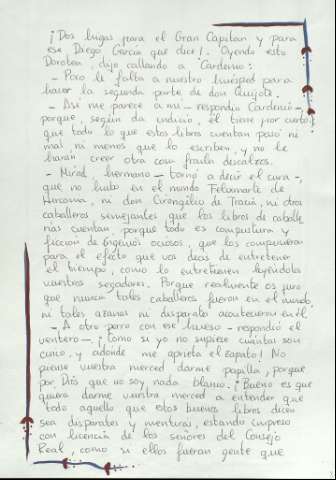 ¡Dos higas para el Gran Capitán y para
ese Diego García que dice! - Oyendo esto
Dorotea, dijo callando a Cardenio:
- Poco le falta a nuestro huésped para
hacer la segunda parte de don Quijote.
- Así me parece a mí - respondió Cardenio -,
porque, según da indicio, él tiene por cierto
que todo lo que estos libros cuentan pasó ni
más ni menos que lo escriben, y no le
harán creer otra cosa frailes descalzos.
- Mirad, hermano - tornó a decir el cura -,
que no hubo en el mundo Felixmarte de
Hircania, ni don Cirongilio de Tracia, ni otros
caballeros semejantes que los libros de caballe
rías cuentan, porque todo es compostura y
ficción de ingenios ociosos, que los compusieron
para el efecto que vos decís de entretener
el tiempo, como lo entretienen leyéndolos
vuestros segadores. Porque realmente os juro
que nunca tales caballeros fueron en el mundo,
ni tales hazañas ni disparates acontecieron en él.
- A otro perro con ese hueso - respondió el
ventero -. ¡Como si yo no supiese cuántas son
cinco, y adónde me aprieta el zapato! No
piense vuestra merced darme papilla, porque
por Dios que no soy nada blanco. ¡Bueno es que
quiera darme vuestra merced a entender que
todo aquello que estos buenos libros dicen
sea disparates y mentiras, estando impreso
con licencia de los señores del Consejo
Real, como si ellos fueran gente que